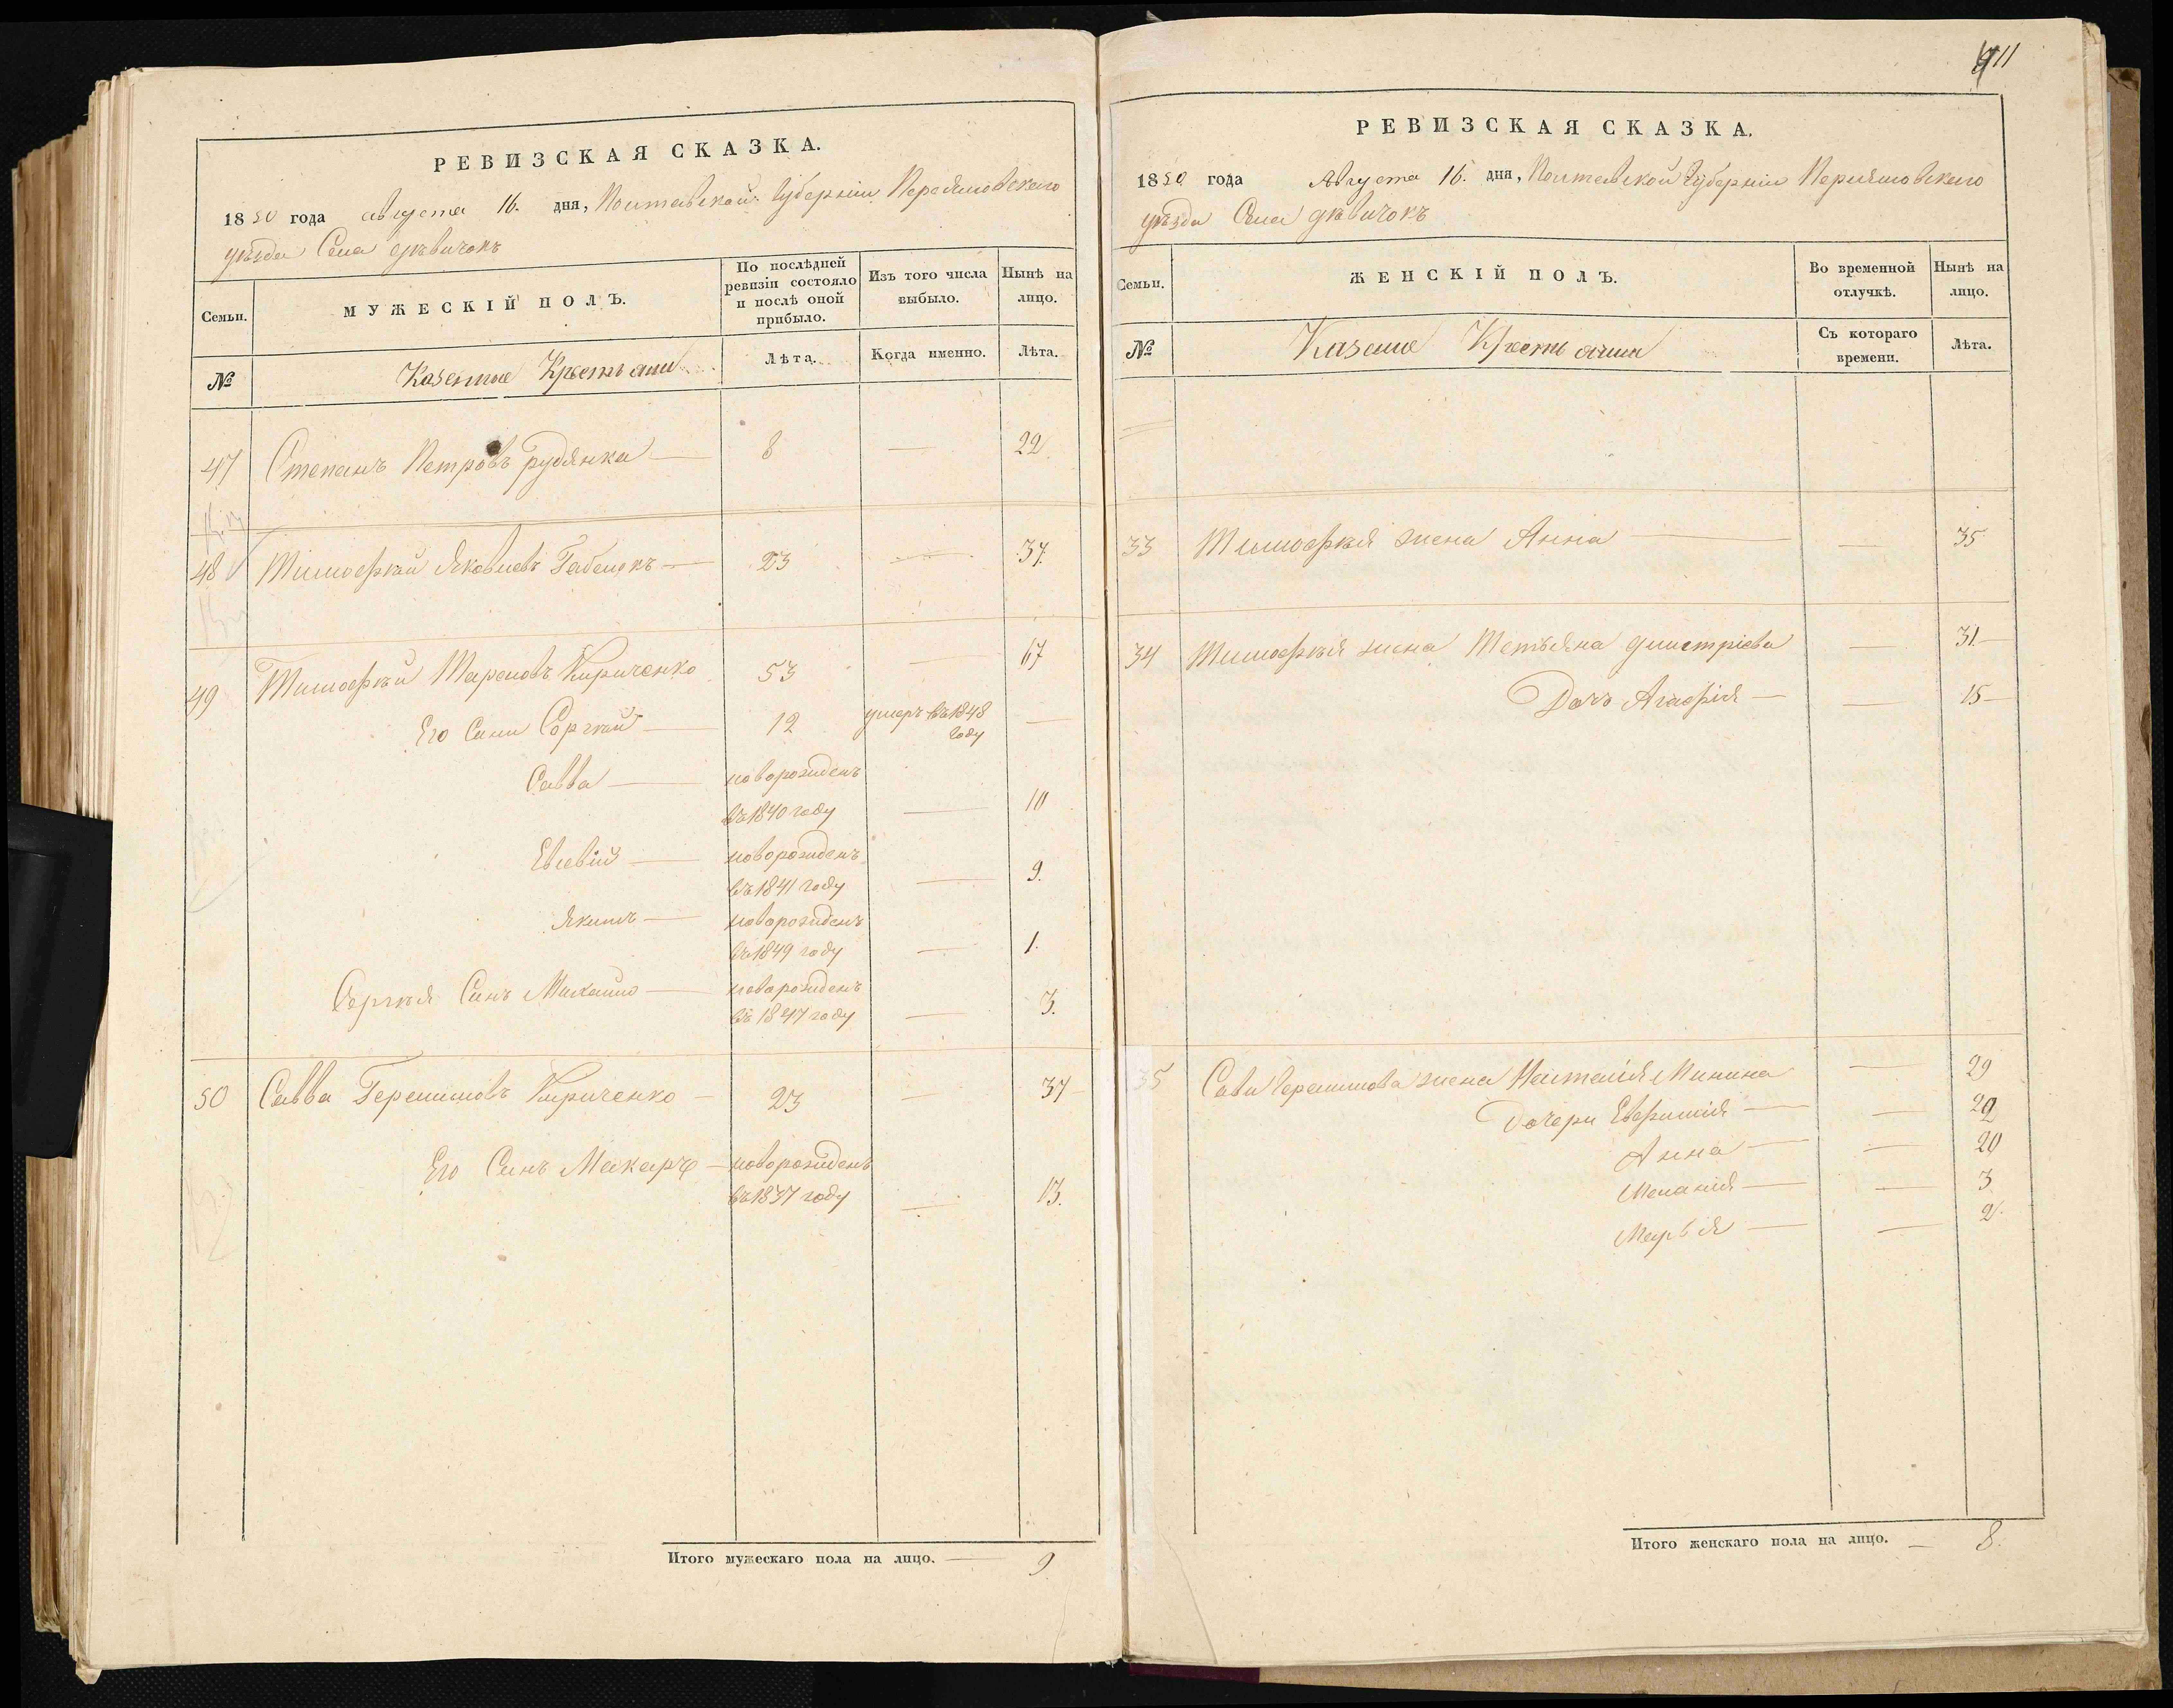 11
РЕВИЗСКАЯ СКАЗКА.
1850 года августа 16. дня, Полтавской Губернiи Переяславского
уѣзда Села дѣвичокъ
Семьи.
МУЖЕСКІЙ ПОЛЪ.
По послѣдней ревизіи состояло и послѣ оной прибыло.
Изъ того числа выбыло.
Нынѣ на лицо.
№
Казенные Крестьяни
Лѣта.
Когда именно.
Лѣта.
47 Степанъ Петровъ рудянка — 8 — 22
48 Тимофѣй Яковлевъ — 23 — 37.
49 Тимофѣй Тарасовъ Кириченко 53 — 67
Его Сини Сергѣй — 12 умеръ въ 1848 году —
Савва — новорожденъ
въ 1840 году — 10
Евсевiй — новорожденъ
въ 1841 году — 9.
Якимъ — новорожденъ
въ 1849 году — 1.
Сергѣя Синъ Михайло — новорожденъ
въ 1847 году — 3.
50 Савва Герасимовъ Кириченко — 23 — 37
Его Синъ Макаръ — новорожденъ
въ 1837 году — 13.
Итого мужескаго пола на лицо. — 9
РЕВИЗСКАЯ СКАЗКА.
1850 года Августа 16. дня, Полтавской Губернiи Переяславского
уѣзда Села дѣвичокъ
Семьи.
ЖЕНСКІЙ ПОЛЪ.
Во временной отлучкѣ.
Нынѣ на лицо.
№
Крестьянки
Съ котораго времени.
Лѣта.
33 Тимофѣя жена Анна — — 35
34 Тимофѣя жена Татьяна дмитрiева — 31
Дочь Агафiя — — 15
35 Сави Герасимова жена Наталiя Минина — 29
Дочери Евфимiя — — 22
Анна — — 20
Меланiя — — 3
Марья — — 2.
Итого женскаго пола на лицо. — 8.